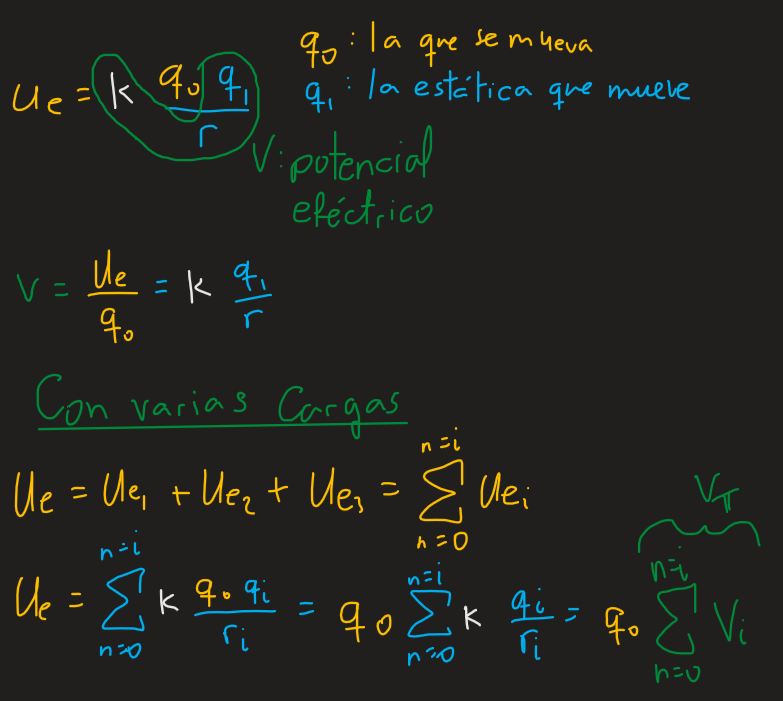 U_e = k \frac{q_0 q_1}{r}
q_0 : la que se mueva
q_1 : la estática que mueve
V: potencial
eléctrico
V = \frac{U_e}{q_0} = k \frac{q_1}{r}
Con varias Cargas
U_e = U_{e_1} + U_{e_2} + U_{e_3} = \sum_{n=0}^{n=i} U_{e_i}
V_T
U_e = \sum_{n=0}^{n=i} k \frac{q_0 q_i}{r_i} = q_0 \sum_{n=0}^{n=i} k \frac{q_i}{r_i} = q_0 \sum_{n=0}^{n=i} V_i